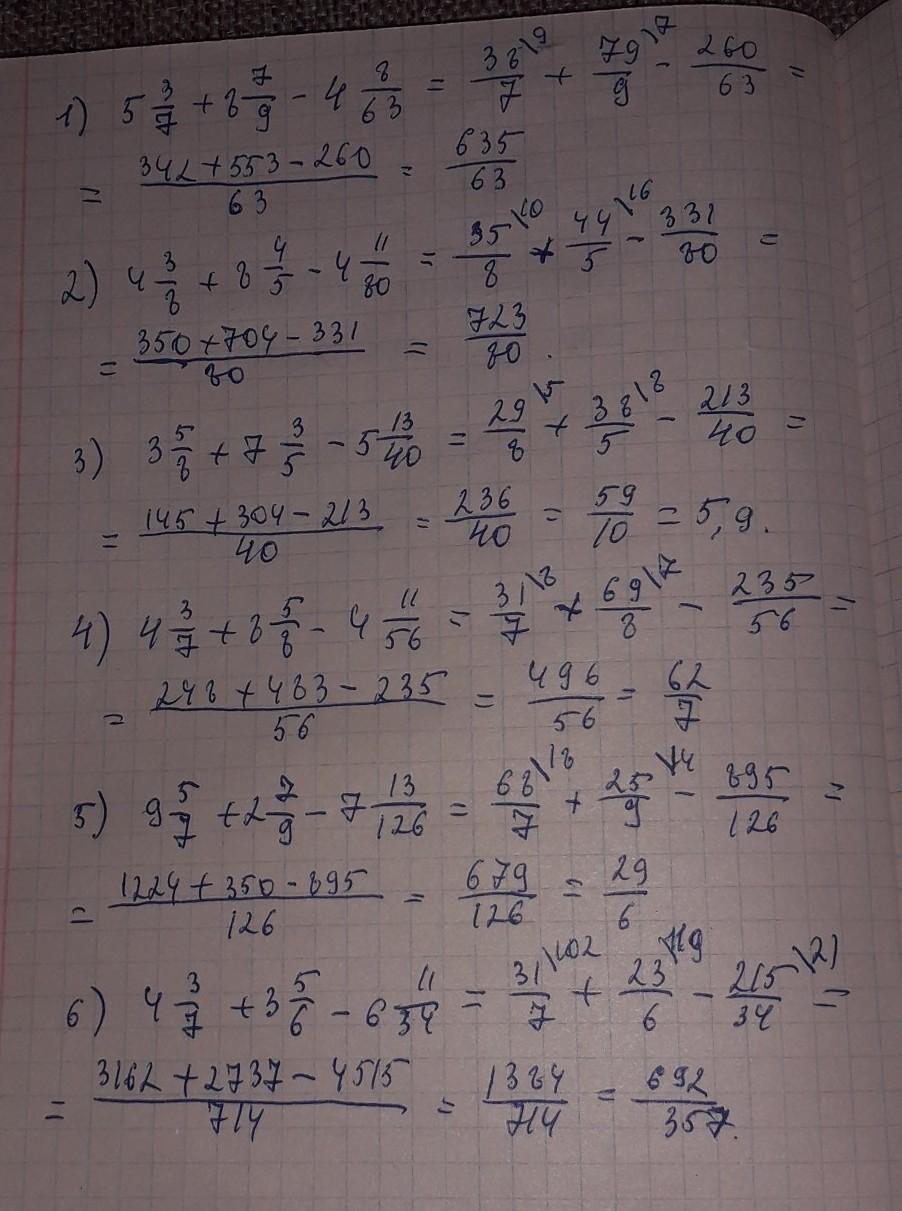 1) 5 3/7 + 8 7/9 - 4 8/63 = 38\9/7 + 79\7/9 - 260/63 =
= (342 + 553 - 260)/63 = 635/63
2) 4 3/8 + 8 4/5 - 4 11/80 = 35\10/8 + 44\16/5 - 331/80 =
= (350 + 704 - 331)/80 = 723/80.
3) 3 5/8 + 7 3/5 - 5 13/40 = 29\5/8 + 38\8/5 - 213/40 =
= (145 + 304 - 213)/40 = 236/40 = 59/10 = 5,9.
4) 4 3/7 + 8 5/8 - 4 11/56 = 31\8/7 + 69\7/8 - 235/56 =
= (248 + 483 - 235)/56 = 496/56 = 62/7
5) 9 5/7 + 2 7/9 - 7 13/126 = 68\18/7 + 25\14/9 - 895/126 =
= (1224 + 350 - 895)/126 = 679/126 = 29/6
6) 4 3/7 + 3 5/6 - 6 11/34 = 31\102/7 + 23\119/6 - 215\21/34 =
= (3162 + 2737 - 4515)/714 = 1384/714 = 692/357.